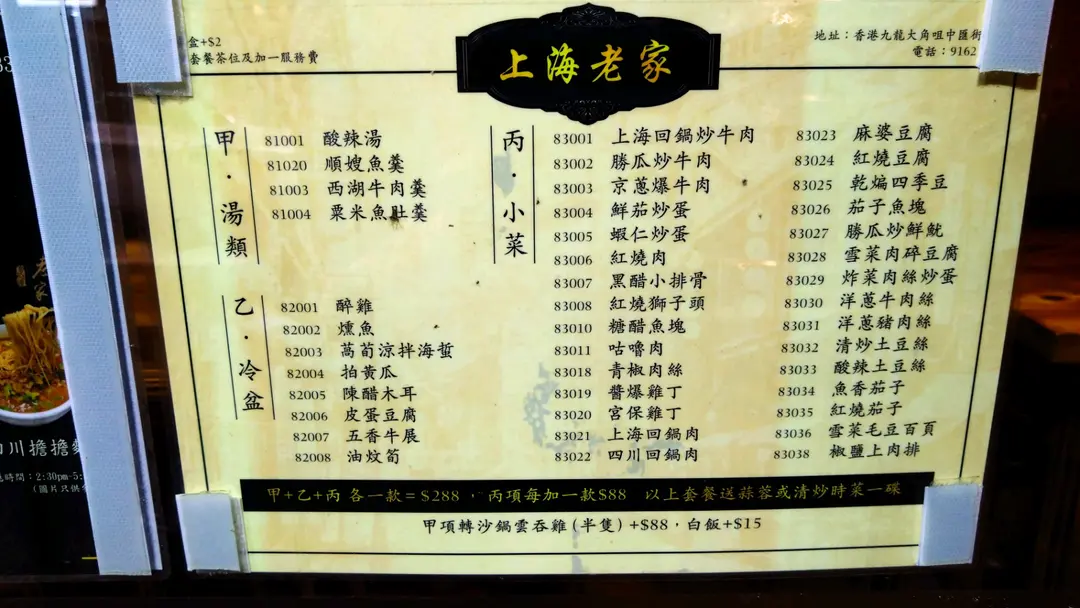 盒+$2
套餐茶位及加一服務費
上海老家
地址：香港九龍大角咀中匯街
電話：9162
甲·湯類
81001 酸辣湯
81020 順嫂魚羹
81003 西湖牛肉羹
81004 粟米魚肚羹
乙·冷盆
82001 醉雞
82002 燻魚
82003 萵荀涼拌海蜇
82004 拍黃瓜
82005 陳醋木耳
82006 皮蛋豆腐
82007 五香牛展
82008 油炆筍
丙·小菜
83001 上海回鍋炒牛肉
83002 勝瓜炒牛肉
83003 京蔥爆牛肉
83004 鮮茄炒蛋
83005 蝦仁炒蛋
83006 紅燒肉
83007 黑醋小排骨
83008 紅燒獅子頭
83010 糖醋魚塊
83011 咕嚕肉
83018 青椒肉絲
83019 醬爆雞丁
83020 宮保雞丁
83021 上海回鍋肉
83022 四川回鍋肉
83023 麻婆豆腐
83024 紅燒豆腐
83025 乾煸四季豆
83026 茄子魚塊
83027 勝瓜炒鮮魷
83028 雪菜肉碎豆腐
83029 炸菜肉絲炒蛋
83030 洋蔥牛肉絲
83031 洋蔥豬肉絲
83032 清炒土豆絲
83033 酸辣土豆絲
83034 魚香茄子
83035 紅燒茄子
83036 雪菜毛豆百頁
83038 椒鹽上肉排
甲+乙+丙 各一款=$288，丙項每加一款$88 以上套餐送蒜蓉或清炒時菜一碟
甲項轉沙鍋雲吞雞(半隻)+$88，白飯+$15
老家
川擔擔麵
時間：2:30pm-5:
(圖片只供